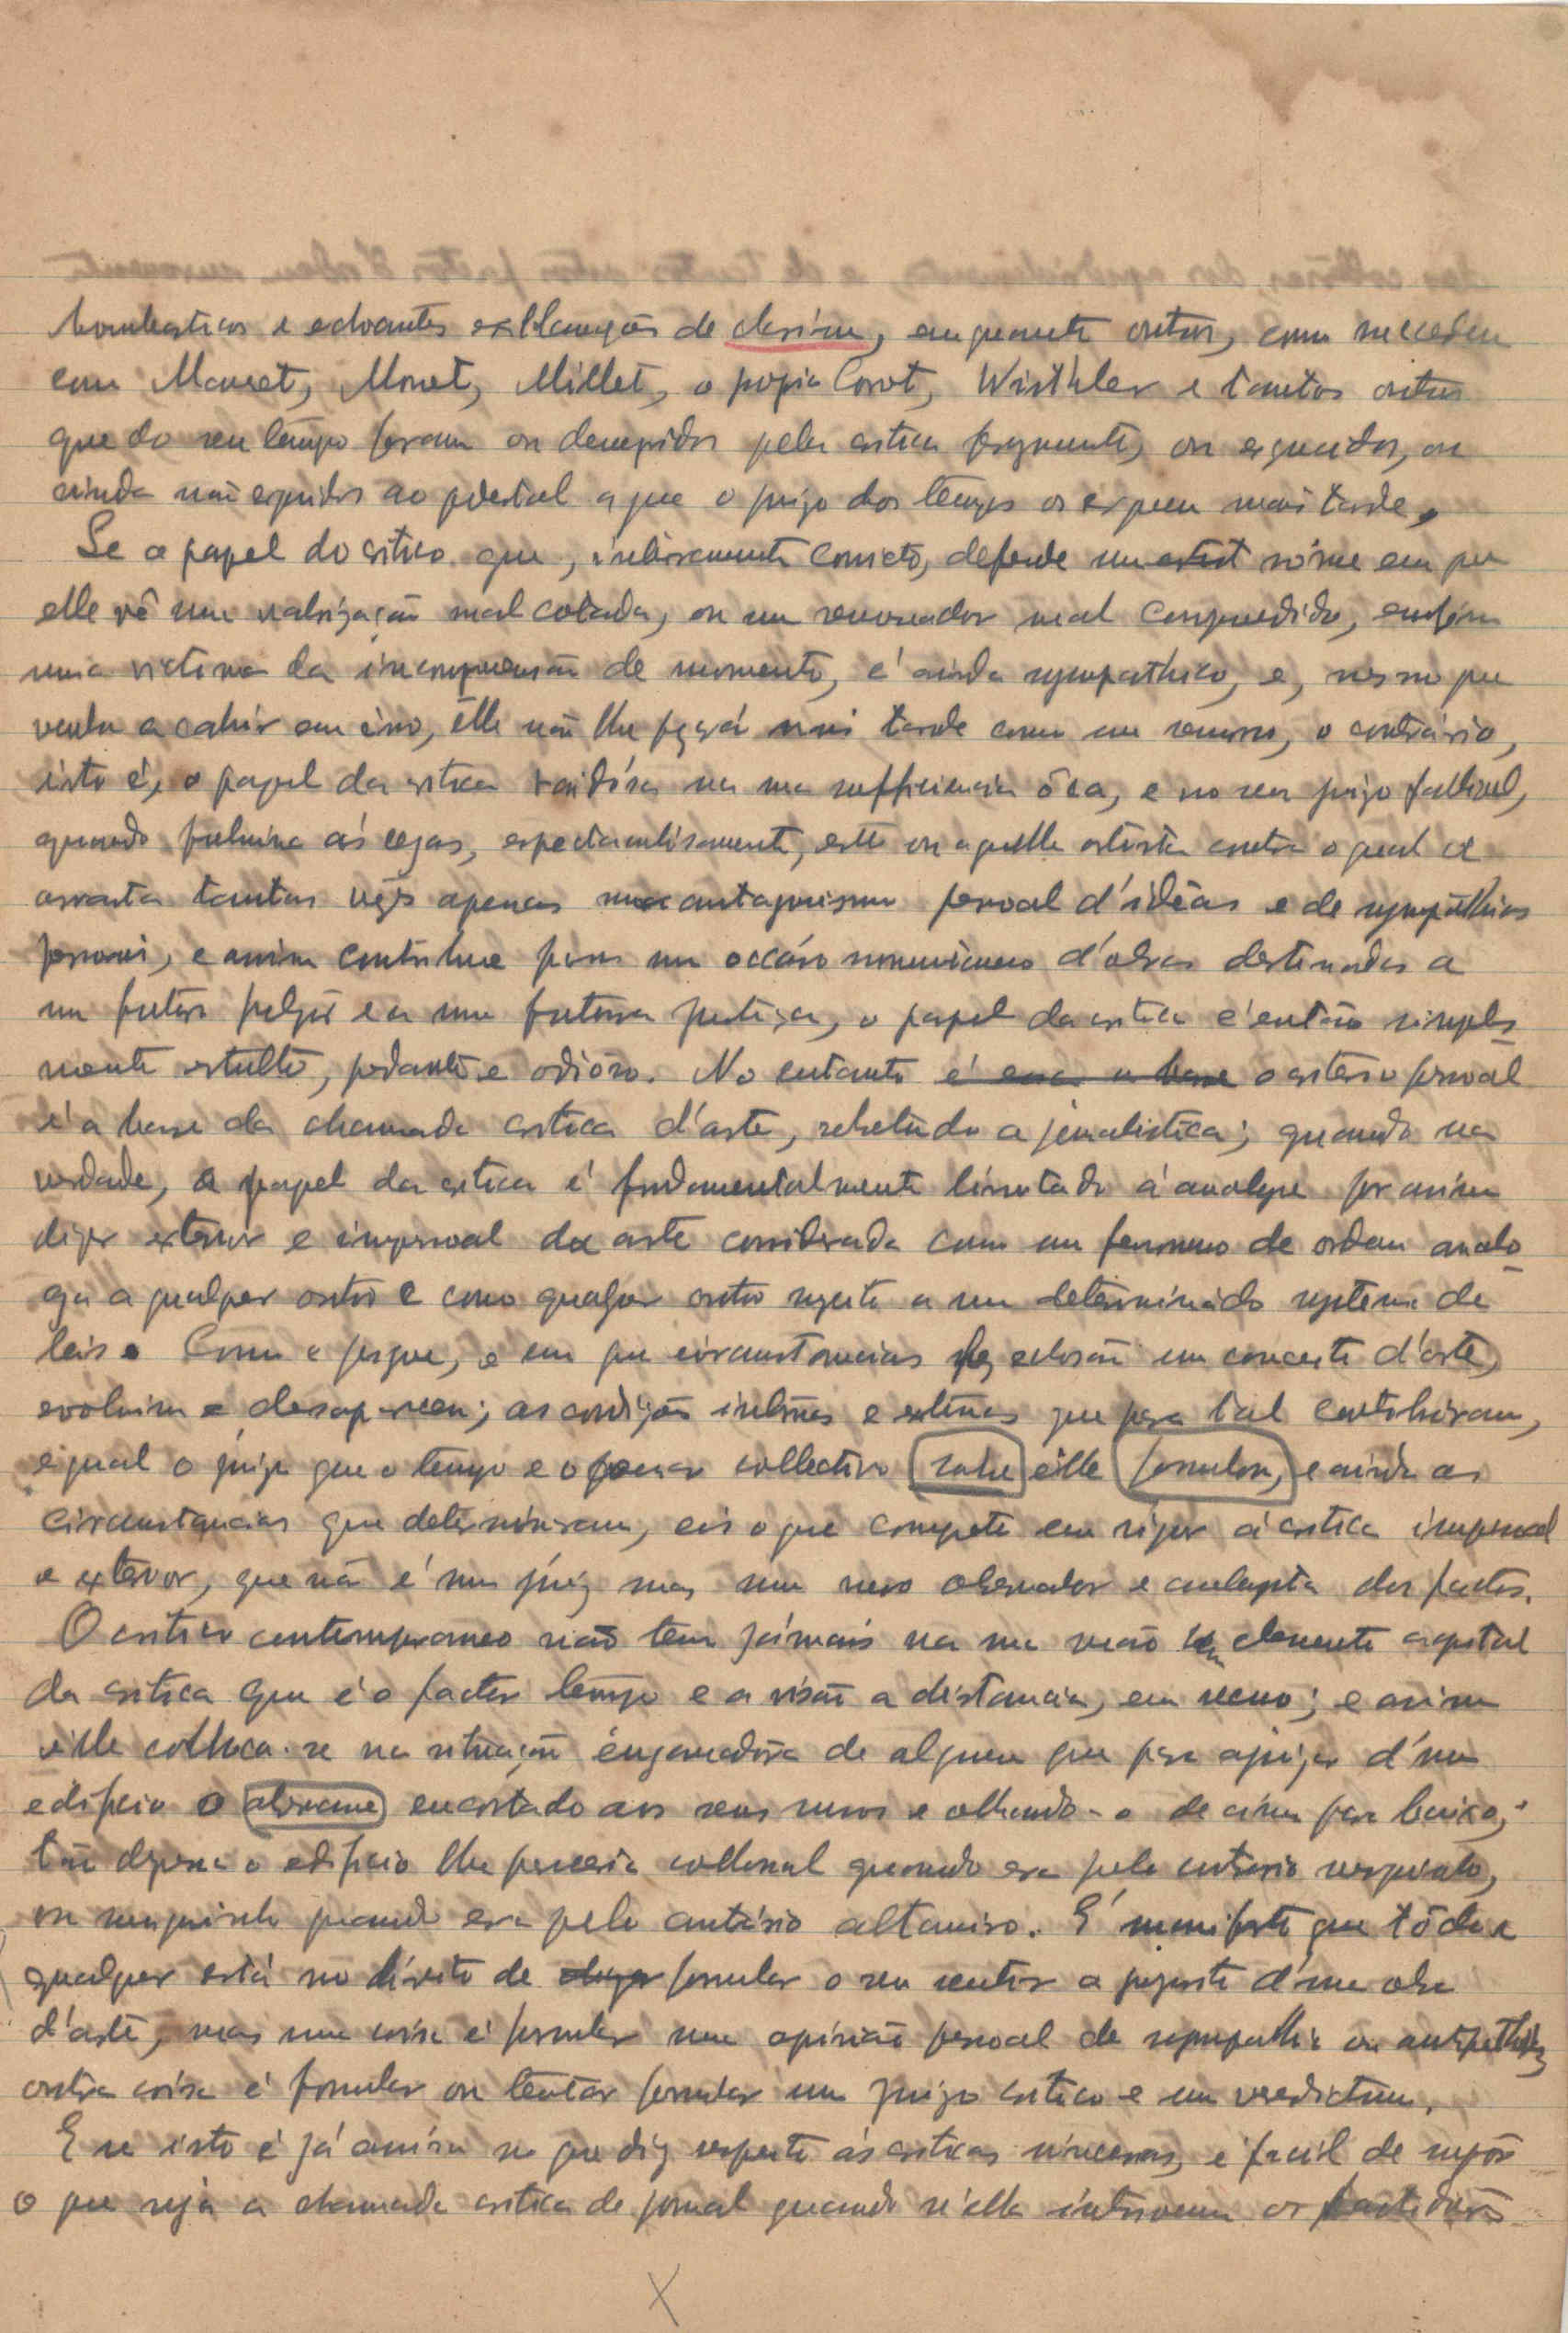 bombasticos e echoantes exclamações de clarim, emquanto outros, como succedeu
com Manet, Monet, Millet, o propio Corot, Wisthler e tantos outros
que do seu tempo foram ou denegridos pela critica fragmente, ou esquecidos, ou
ainda não erguidos ao pedestal a que o juizo dos tempos os ergueu mais tarde.
Se o papel do critico que, inteiramente convicto, defende um artist nóme em que
elle vê uma valorização mal cotada, ou um renovador mal comprendido, emfim
uma victima da incomprensão de momento, é ainda sympathico, e, mesmo que
venha a cahir em êrro, êlle não lhe pezará mais tarde como um remorso, o contrário,
isto é, o papel da critica vaidósa na sua sufficiencia ôca, e no seu juizo fallivel,
quando fulmina ás cegas, espectaculosamente, este ou aquelle artista contra o qual a
arrasta tantas vezes apenas um antagonismo pessoal d'idêas e de sympathias
pessoais, e assim contribue para um occáso momentaneo d'obras destinadas a
um futuro fulgor e a uma futura justiça, o papel da critica é então simples-
mente estulto, pedante e odiôso. No entanto é essa a base o criterio pessoal
é a base da chamada critica d'arte, sobretudo a jornalistica; quando na
verdade, o papel da critica é fundamentalmente limitado á analyse por assim
dizer exterior e impessoal da arte considerada como um fenomeno de ordem analo-
ga a qualquer outro e como qualquer outro sujeito a um determinado systema de
leis. Como e porque, e em que circunstancias fez eclosão um conceito d'arte,
evoluiu e desapareceu; as condições intêrnas e extêrnas que para tal contribuiram,
e qual o juizo que o tempo e o pensar collectivo sobre êlle formulou, e ainda as
circunstancias que determinaram, eis o que compete em rigor á critica impessoal
e exterior, que não é um juiz mas um mero observador e analysta dos factos.
O critico contemporaneo não tem jámais na sua mão um elemento capital
da critica que é o factor tempo e a visão a distancia, em recuo; e assim
êlle colloca-se na situação enganadora de alguem que para ajuizar d'um
edificio o observasse encostado aos seus muros e olhando-o de cima para baixo;
tão depressa o edificio lhe pareceria collossal quando era pelo contrario mesquinho,
ou mesquinho quando era pelo contrário altaneiro. É manifesto que todo e
qualquer está no direito de dizer formular o seu sentir a proposito d'uma obra
d'arte, mas uma coisa é formular uma opinião pessoal de sympathia ou antipathia,
outra coisa é formular ou tentar formular um juizo critico e um veredictum.
E se isto é já assim no que diz respeito ás criticas sinceras, é facil de supôr
o que seja a chamada critica de jornal quando n'ella intervenem os partidarios
X